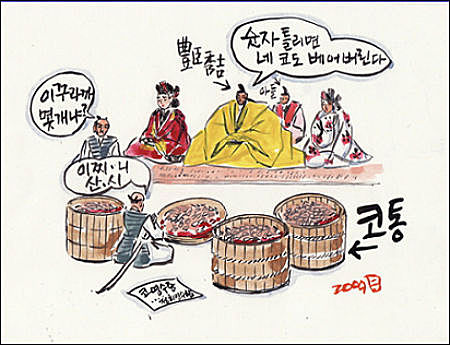 숫자 틀리면
네 코도 베어버린다
豊臣秀吉
아들
이꾸라까
몇개냐?
이찌·니
산·시
코통
코영수장
2009